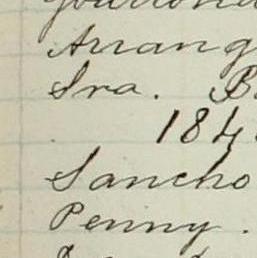 Arrang
Sra. B
184
Sancho
Penny.